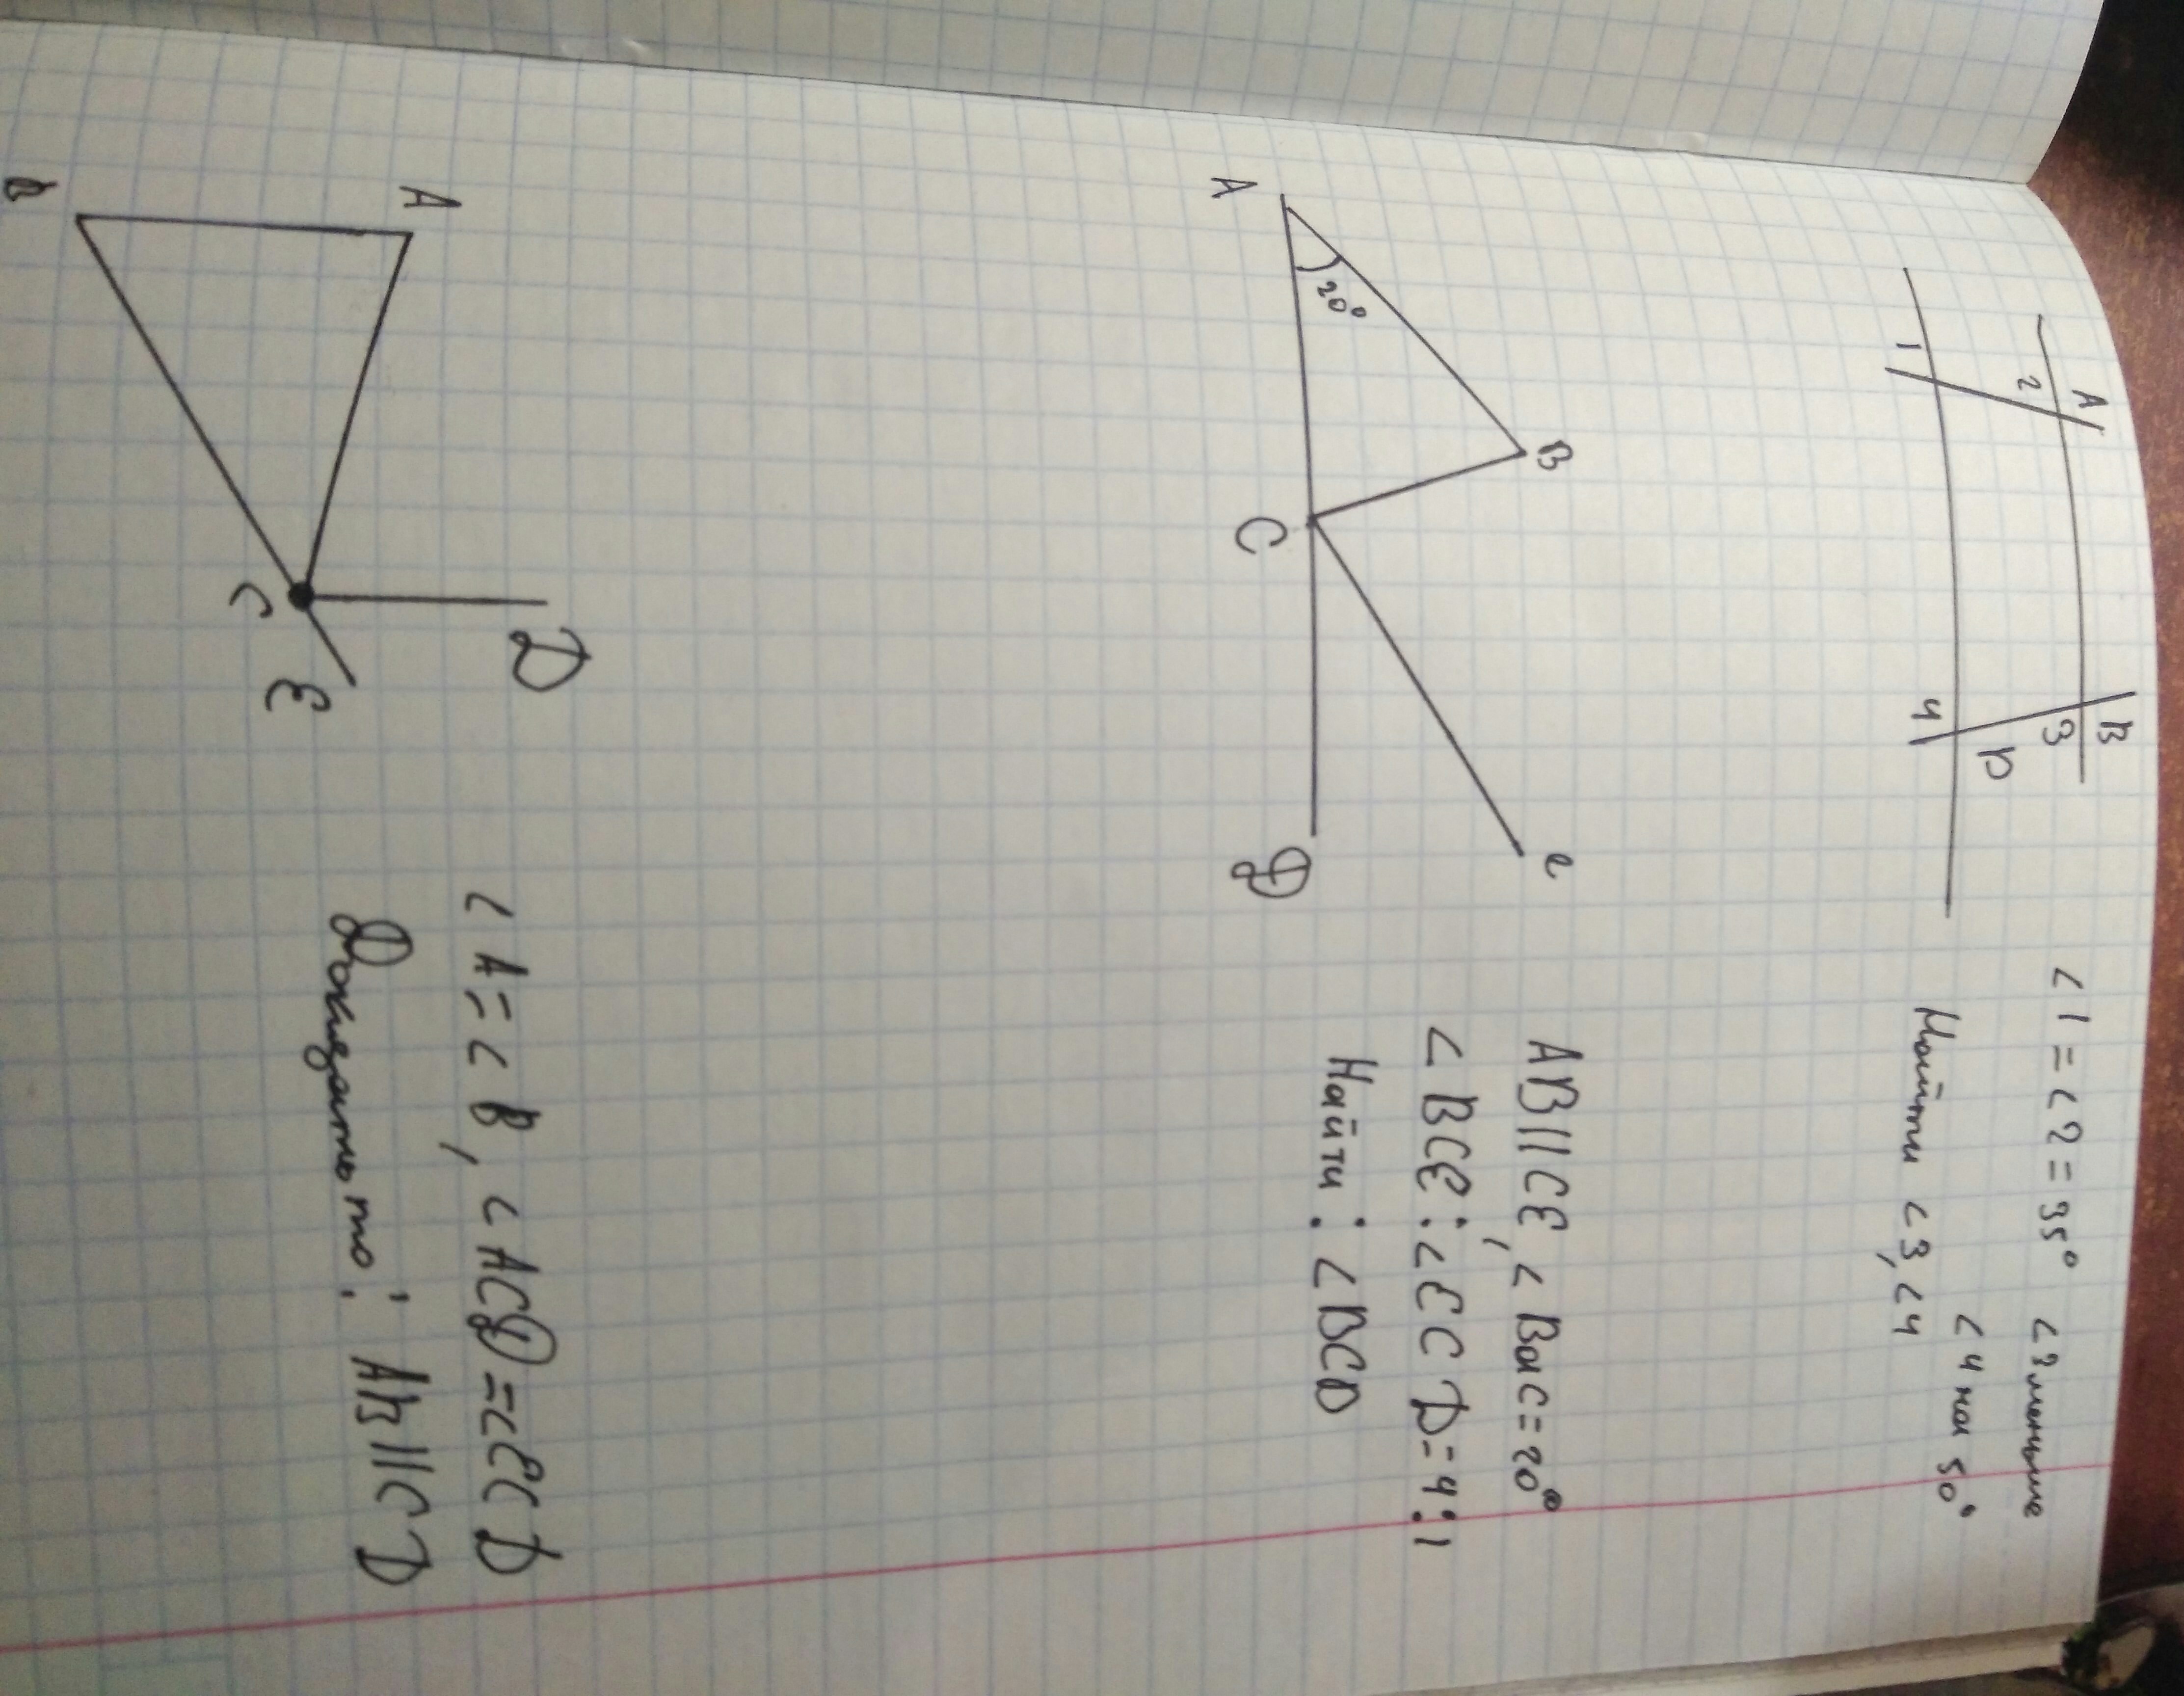 A
B
2
3
D
1
4
< 1 = < 2 = 95° < 3 меньше
< 4 на 50°
Найти < 3, < 4
B
e
20°
A
C
D
AB || CE, < BAC = 20°
< BCE : < ECD = 4 : 1
Найти : < BCD
D
A
C
E
B
< A = < B, < ACD = < ECD
Доказать то : AB || CD